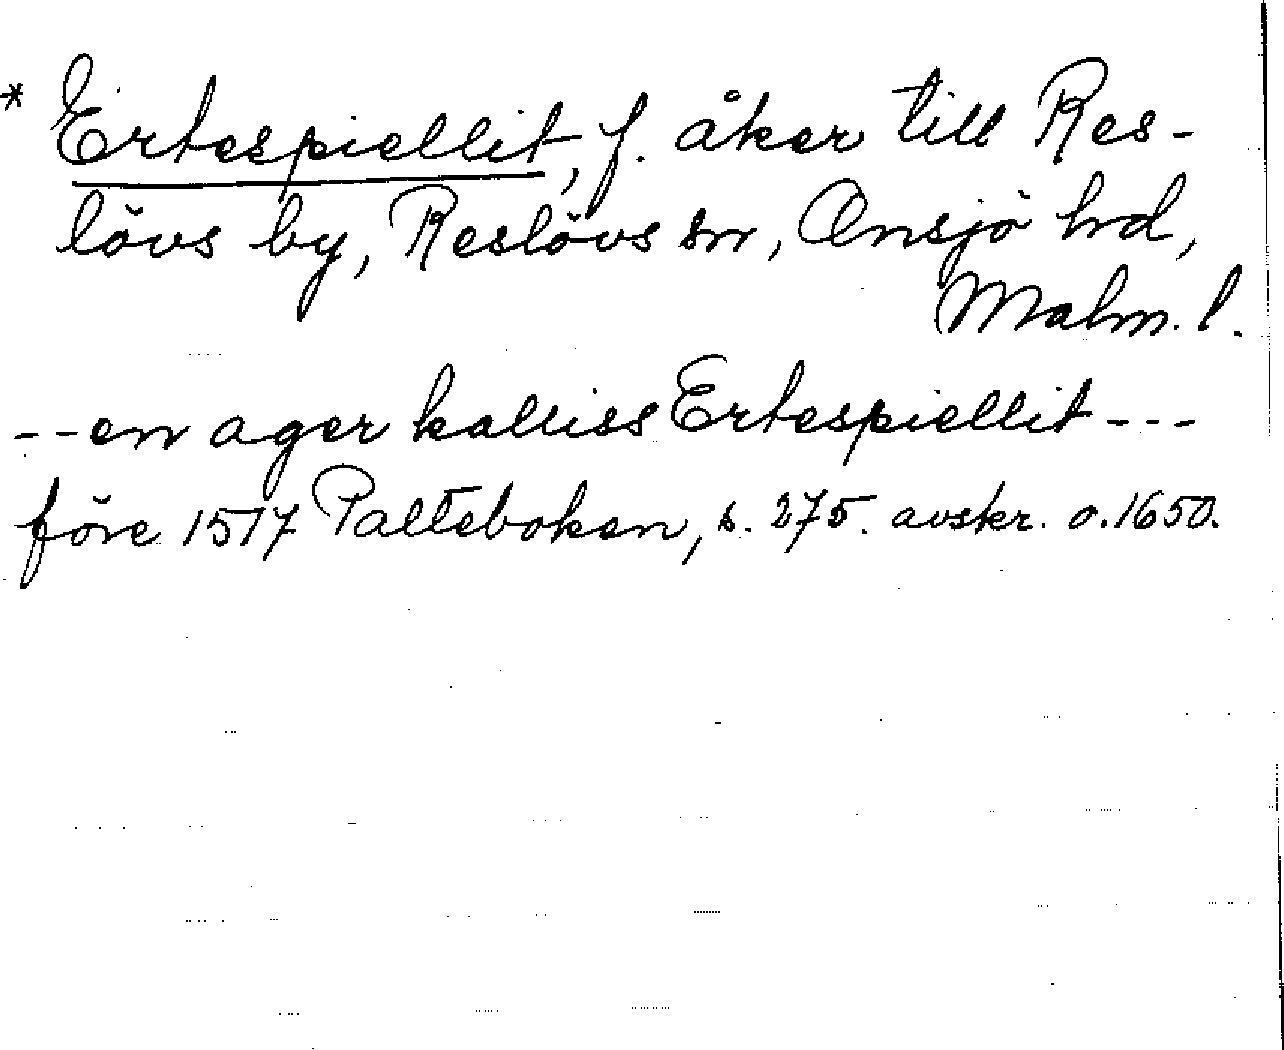 * Ertespiellit, f. åker till Res-
lövs by, Reslövs sn, Onsjö hd,
Malm. l.
-- en ager kalliss Ertespiellit ---
före 1517 Paltebokan, s. 275. avskr. o. 1650.